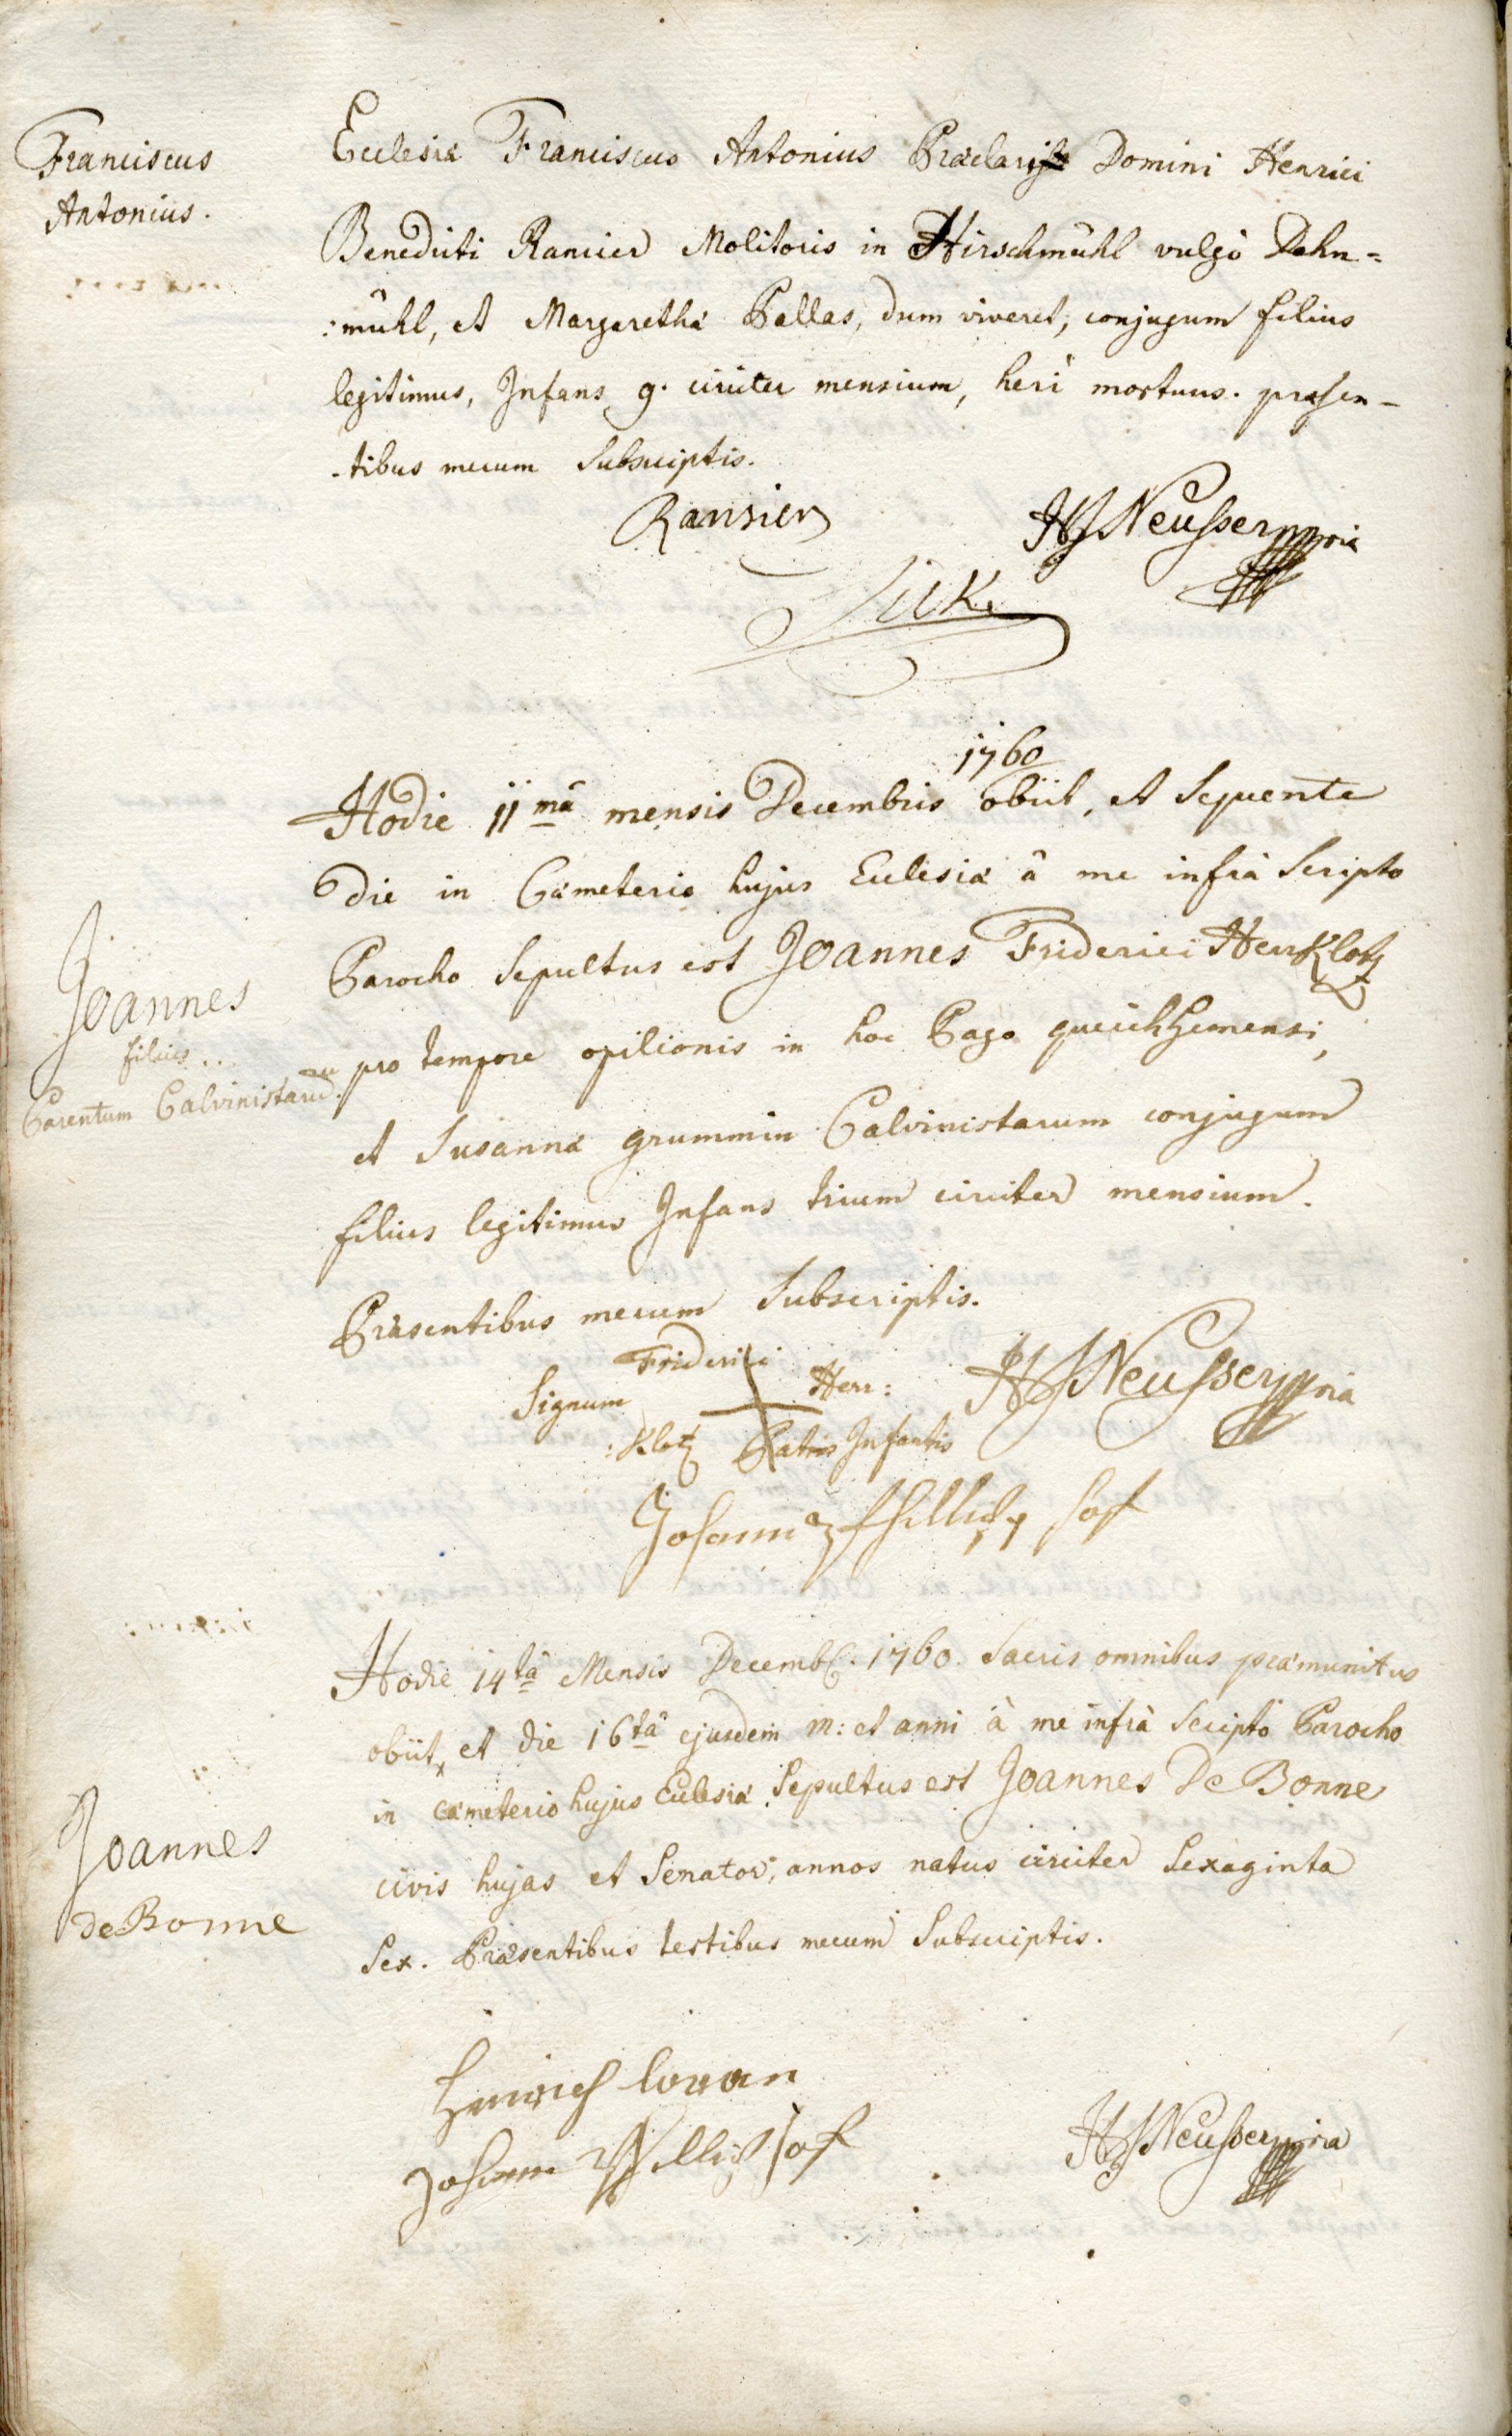 Franciscus
Antonius.
Ecclesiæ Franciscus Antonius Præclari Domini Henrici
Benedicti Rancier Molitoris in Hirschmühl vulgò Dehn=
:mühl, et Margarethæ Pallas, dum viveret, conjugum filius
legitimus, Infans 9. circiter mensium, heri mortuus. præsen-
-tibus mecum Subscriptis.
Ransier HJNeusser mpria
Lick
1760
Hodie 11mâ mensis Decembris obiit, et Sequente
die in Cæmeterio hujus Ecclesiæ â me infrà Scripto
Parocho Sepultus est Joannes Friderici HerrKlotz
Joannes
filius
Parentum Calvinistarum.
pro tempore opilionis in hoc Pago queichhemensi,
et Susannæ grummin Calvinistarum conjugum
filius legitimus Infans trium circiter mensium.
Præsentibus mecum Subscriptis.
Signum Friderici Herr: HJNeusser mpria
:Klotz Patris Infantis
Johannes
Hodie 14tâ Mensis Decemb. 1760. Sacris omnibus præmunitus
obiit, et die 16tâ ejusdem m: et anni à me infrà Scripto Parocho
in cæmeterio hujus Ecclesiæ Sepultus est Joannes De Bonne
Joannes
de Bonne
civis hujas et Senator, annos natus circiter Sexaginta
Sex. Præsentibus testibus mecum Subscriptis.
Heinrich
Johann HJNeusser mpria